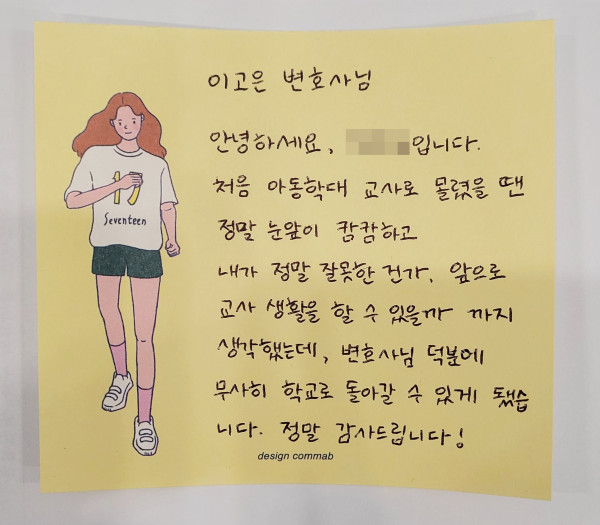 이고은 변호사님
안녕하세요, 입니다.
처음 아동학대 교사로 몰렸을 땐
정말 눈앞이 캄캄하고
내가 정말 잘못한 건가, 앞으로
교사 생활을 할 수 있을까 까지
생각했는데, 변호사님 덕분에
무사히 학교로 돌아갈 수 있게 됐습
니다. 정말 감사드립니다!
17
Seventeen
design commab